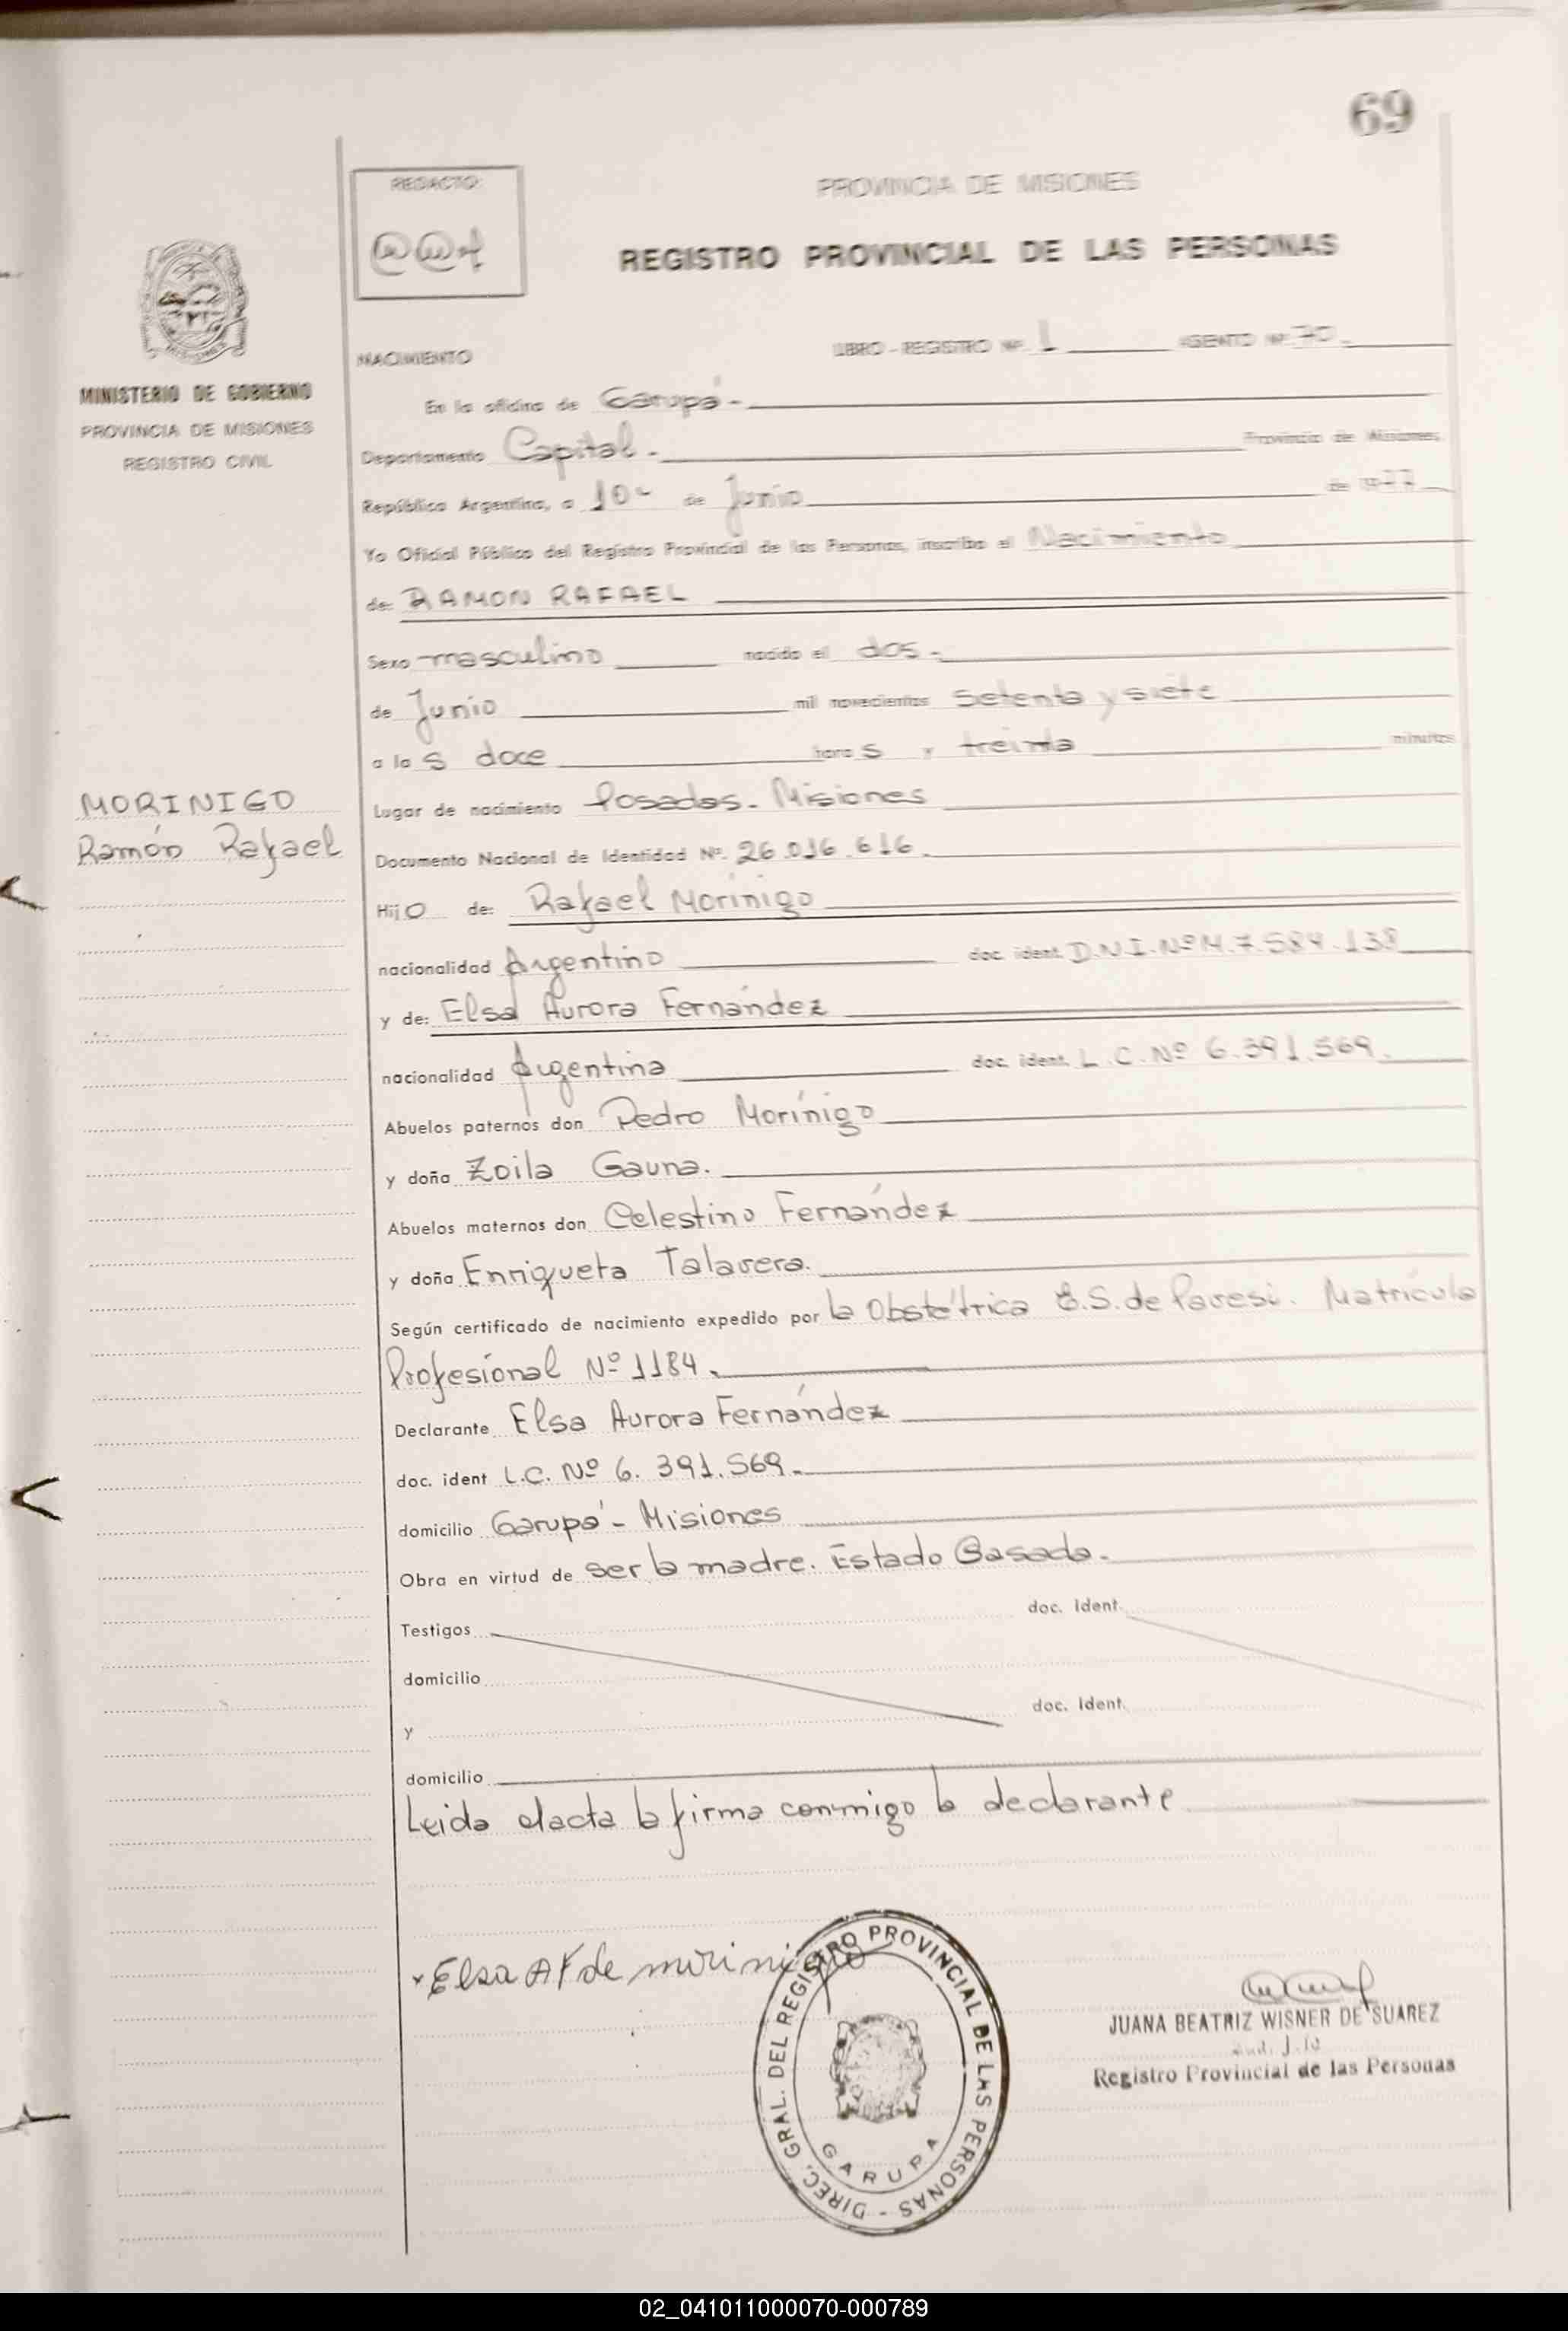 69
REDACTO:
PROVINCIA DE MISIONES
REGISTRO PROVINCIAL DE LAS PERSONAS
MISIONES
MINISTERIO DE GOBIERNO
PROVINCIA DE MISIONES
REGISTRO CIVIL
NACIMIENTO
LIBRO - REGISTRO Nº 1 ASIENTO Nº 70
En la oficina de Garupá-
Departamento Capital. Provincia de Misiones,
República Argentina, a 10 de Junio de 1977
Yo Oficial Público del Registro Provincial de las Personas, inscribo el Nacimiento
de: RAMON RAFAEL
Sexo masculino nacido el dos.
de Junio mil novecientos setenta y siete
a las doce horas y treinta minutos
MORINIGO
Ramón Rafael
Lugar de nacimiento Posadas. Misiones
Documento Nacional de Identidad Nº. 26.016.616.
Hijo de: Rafael Morínigo
nacionalidad Argentino doc. ident. D.N.I. Nº M. 7.584.138
y de: Elsa Aurora Fernández
nacionalidad Argentina doc. ident. L.C. Nº 6.391.569.
Abuelos paternos don Pedro Morínigo
y doña Zoila Gauna.
Abuelos maternos don Celestino Fernández
y doña Enriqueta Talavera.
Según certificado de nacimiento expedido por la Obstétrica E.S. de Pavesi. Matrícula
Profesional Nº 1184.
Declarante Elsa Aurora Fernández
doc. ident L.C. Nº 6.391.569.
domicilio Garupá - Misiones
Obra en virtud de ser la madre. Estado Casada.
Testigos doc. ident.
domicilio
y doc. ident.
domicilio
Leida elacta la firma conmigo la declarante
Elsa A F de morinigo
DIREC. GRAL. DEL REGISTRO PROVINCIAL DE LAS PERSONAS -
GARUPA
JUANA BEATRIZ WISNER DE SUAREZ
Registro Provincial de las Personas
02_041011000070-000789